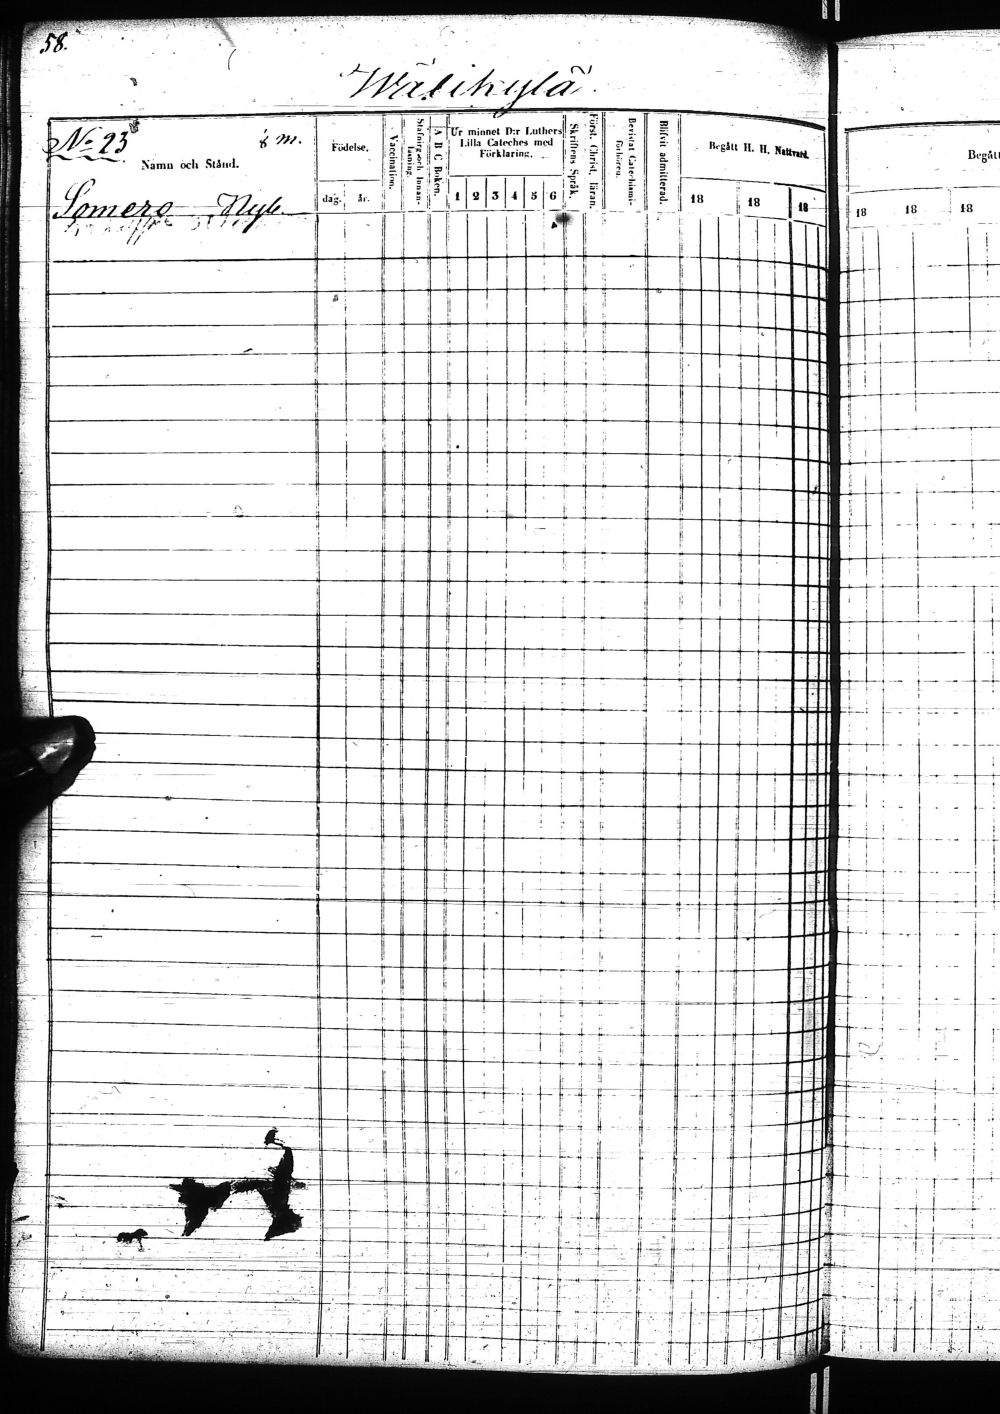 58.
Wälikylä
No 23
m.
Namn och Stånd.
Födelse.
dag. år.
Vaccination.
Stafning och Innan-
läsning.
A B C Boken.
Ur minnet D:r Luthers
Lilla Cateches med
Förklaring.
1 2 3 4 5 6
Skriftens Språk.
Först. Christ. läran.
Bevistat Catechismi-
förhören.
Blifvit admitterad.
Begått H. H. Nattvard.
18 18 18
Begått
18 18 18
Somero Nyb.